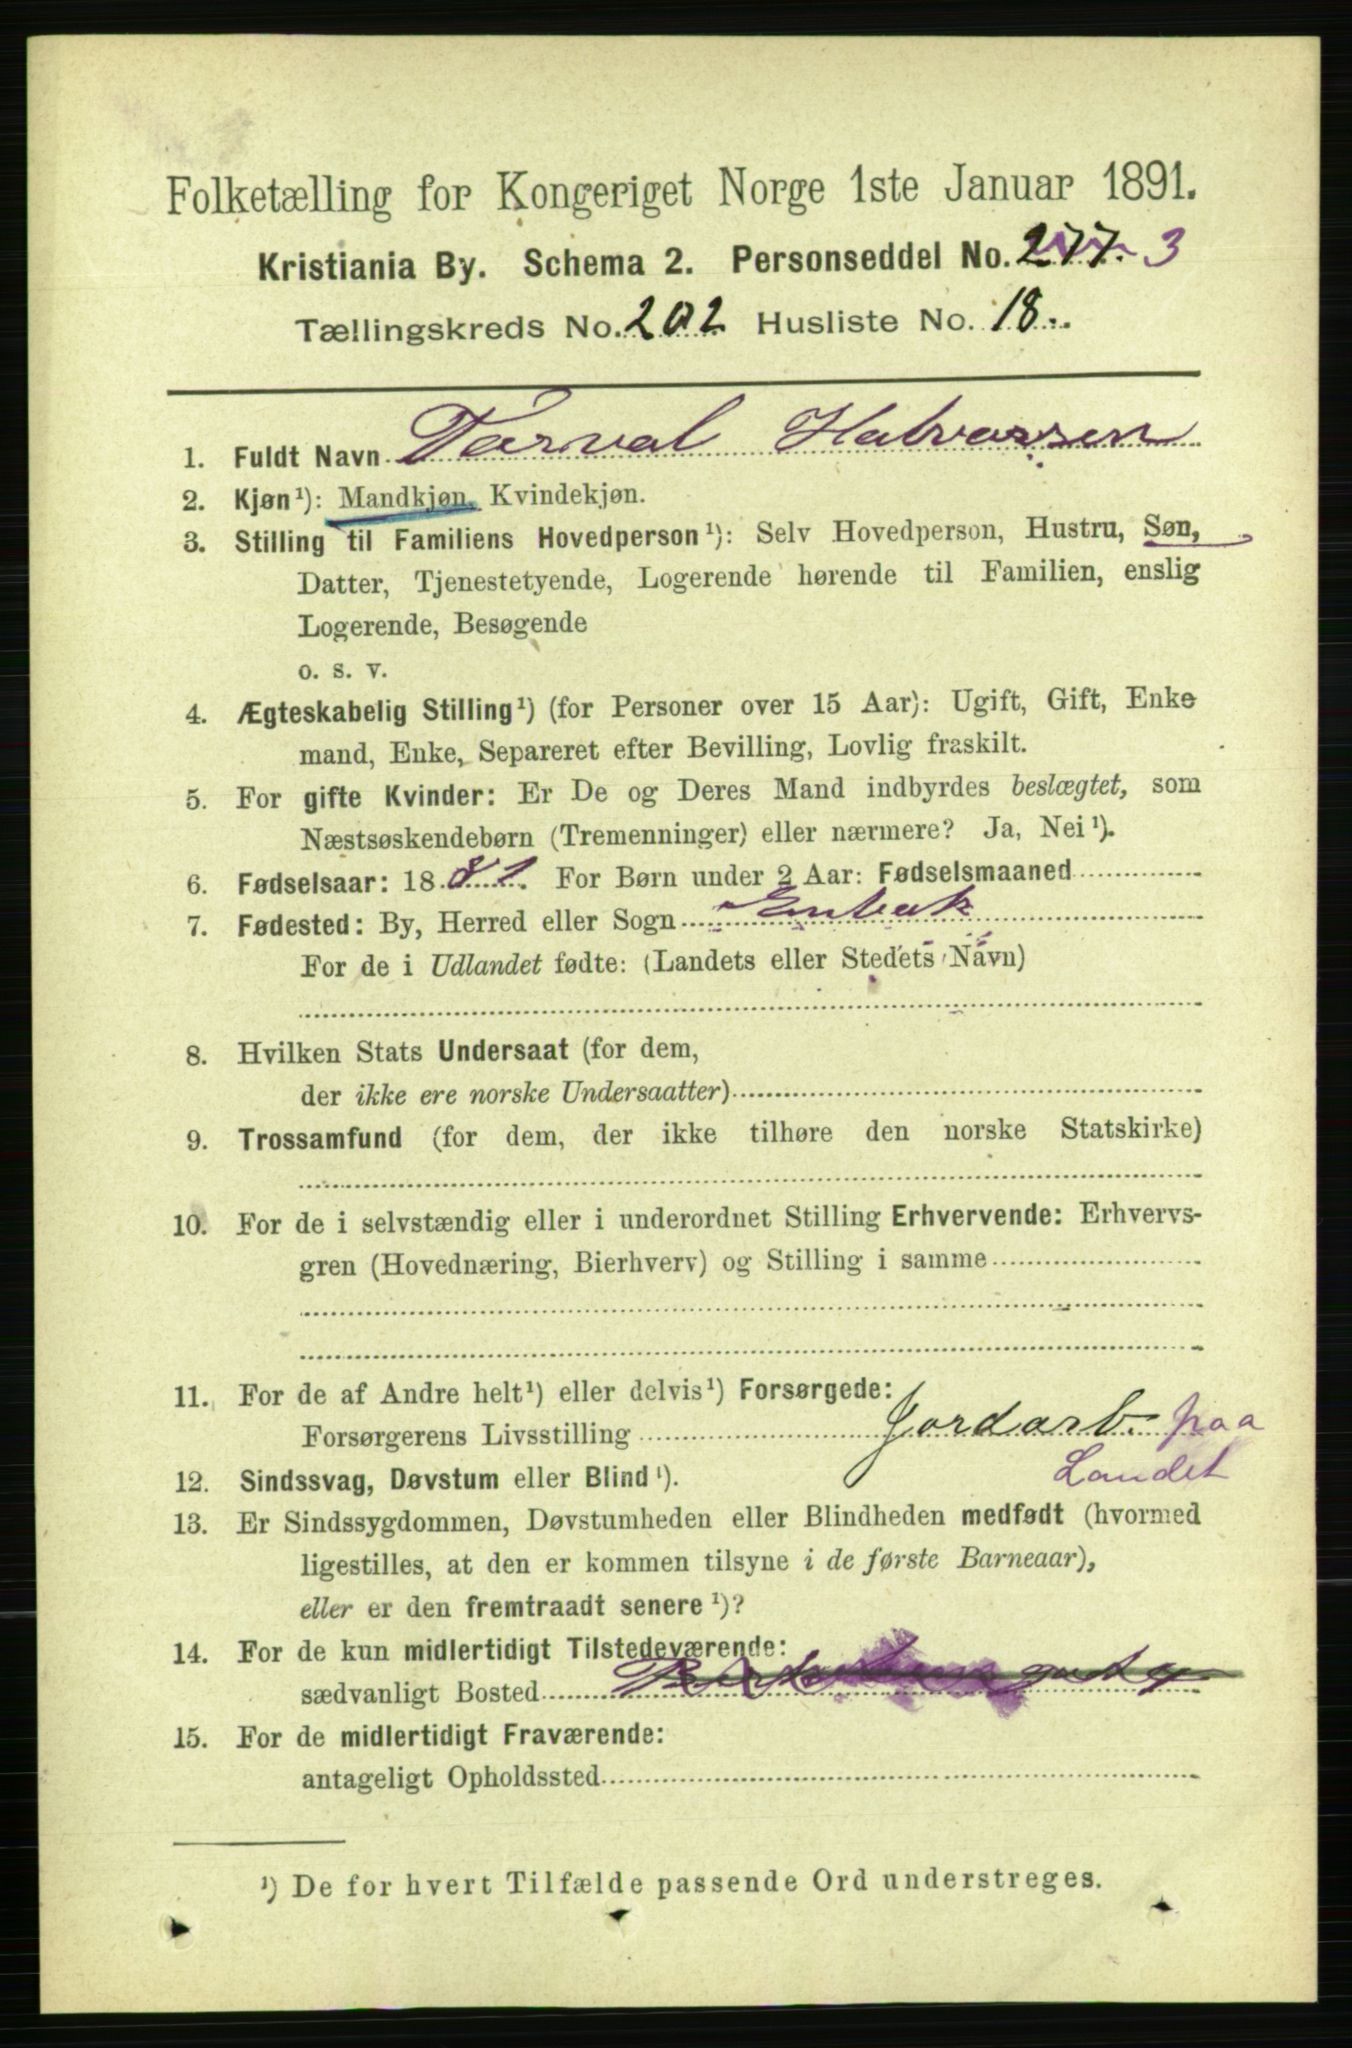 Folketælling for Kongeriget Norge 1ste Januar 1891.
Kristiania By. Schema 2. Personseddel No. 277-3
Tællingskreds No. 202 Husliste No. 18.
1. Fuldt Navn Torval Halvorsen
2. Kjøn¹): Mandkjøn, Kvindekjøn.
3. Stilling til Familiens Hovedperson¹): Selv Hovedperson, Hustru, Søn,
Datter, Tjenestetyende, Logerende hørende til Familien, enslig
Logerende, Besøgende
o. s. v.
4. Ægteskabelig Stilling¹) (for Personer over 15 Aar): Ugift, Gift, Enke
mand, Enke, Separeret efter Bevilling, Lovlig fraskilt.
5. For gifte Kvinder: Er De og Deres Mand indbyrdes beslægtet, som
Næstsøskendebørn (Tremenninger) eller nærmere? Ja, Nei¹).
6. Fødselsaar: 1881. For Børn under 2 Aar: Fødselsmaaned
7. Fødested: By, Herred eller Sogn Enbak
For de i Udlandet fødte: (Landets eller Stedets Navn)
8. Hvilken Stats Undersaat (for dem,
der ikke ere norske Undersaatter)
9. Trossamfund (for dem, der ikke tilhøre den norske Statskirke)
10. For de i selvstændig eller i underordnet Stilling Erhvervende: Erhvervs-
gren (Hovednæring, Bierhverv) og Stilling i samme
11. For de af Andre helt¹) eller delvis¹) Forsørgede:
Forsørgerens Livsstilling Jordarb. paa
Landet
12. Sindssvag, Døvstum eller Blind¹).
13. Er Sindssygdommen, Døvstumheden eller Blindheden medfødt (hvormed
ligestilles, at den er kommen tilsyne i de første Barneaar),
eller er den fremtraadt senere¹)?
14. For de kun midlertidigt Tilstedeværende:
sædvanligt Bosted
15. For de midlertidigt Fraværende:
antageligt Opholdssted
¹) De for hvert Tilfælde passende Ord understreges.